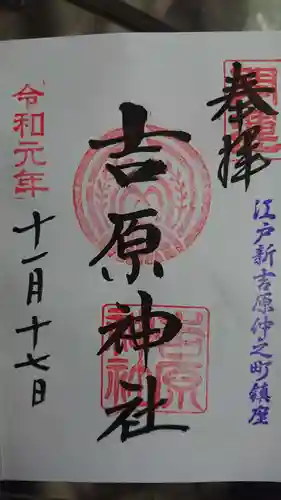 奉拝
開運
江戸新吉原仲之町鎮座
吉原神社
吉原神社
令和元年
十一月十七日